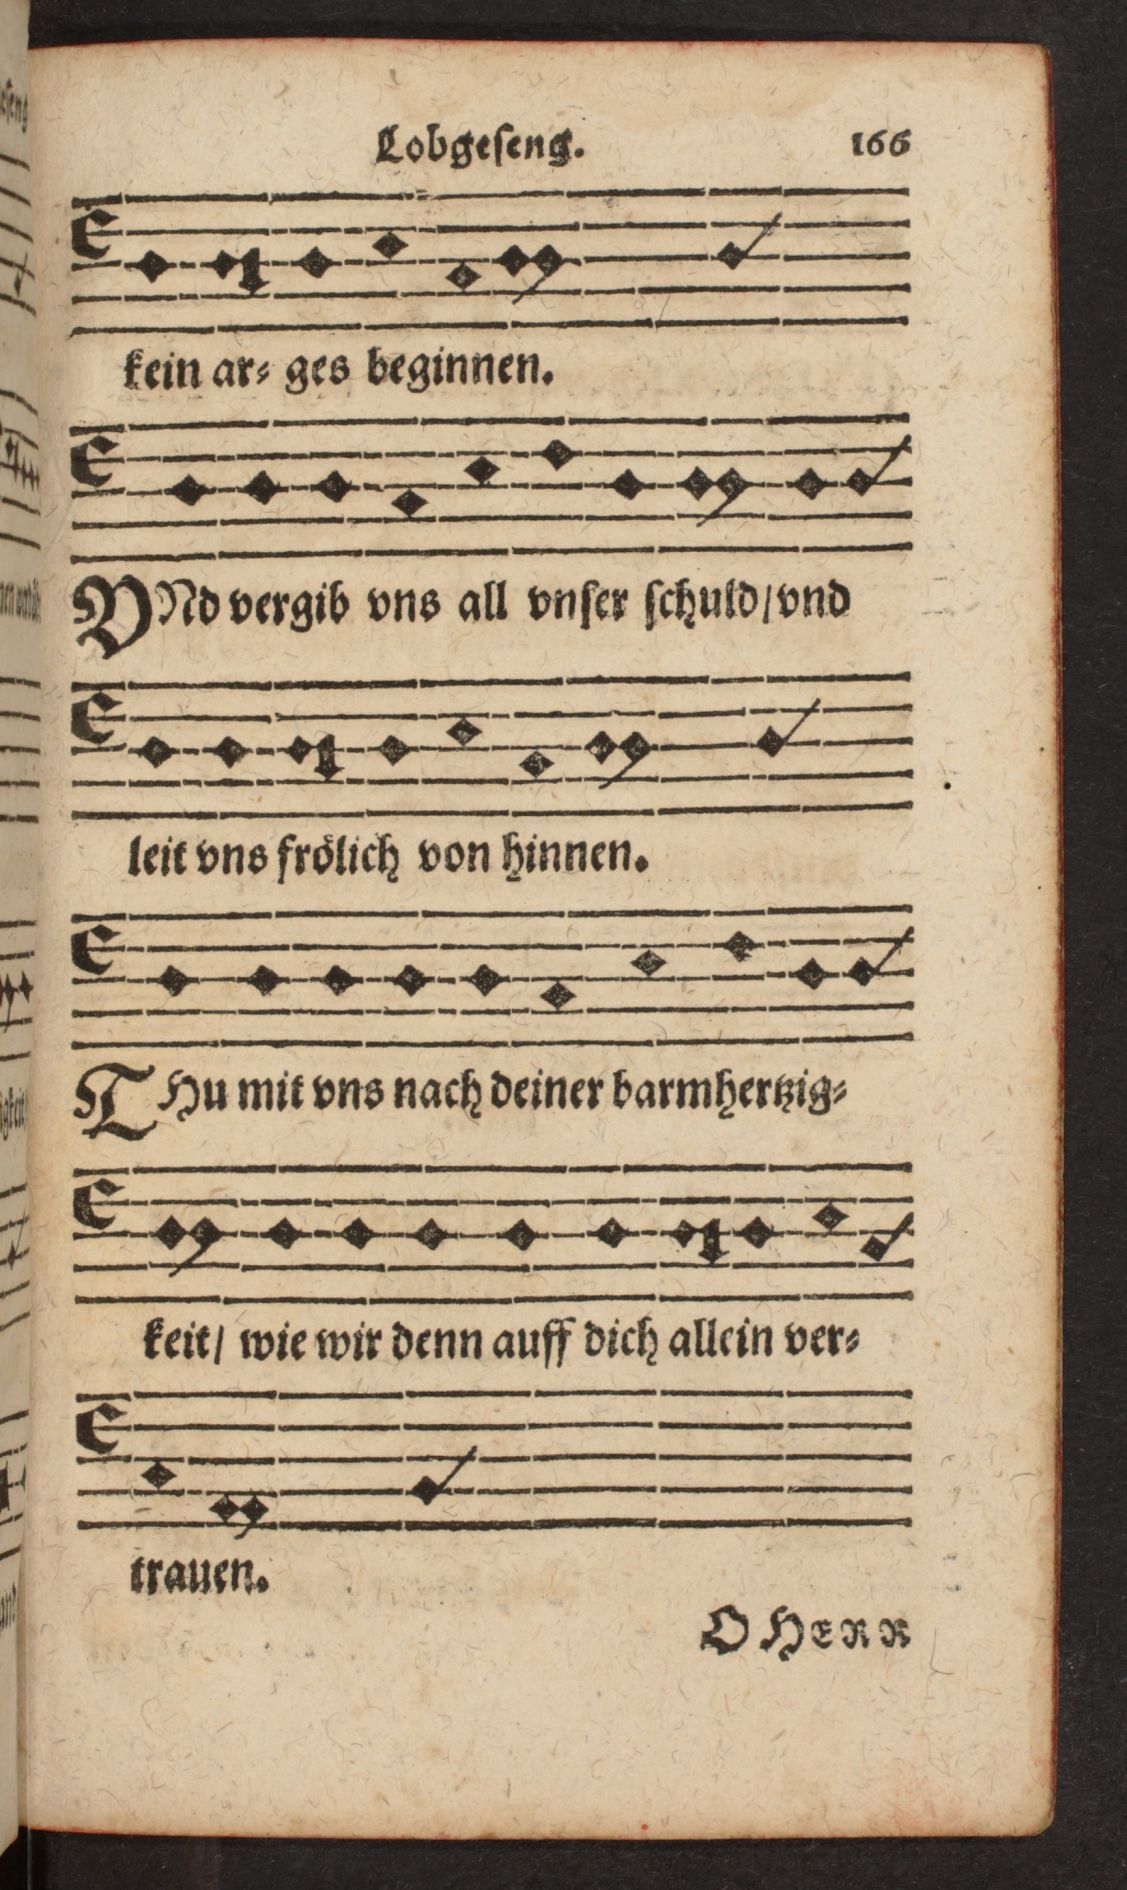 Lobgeſeng. 166
kein ar⸗ ges beginnen.
VNd vergib vns all vnſer ſchuld/vnd
leit vns frölich von hinnen.
THu mit vns nach deiner barmhertzig⸗
keit/ wie wir denn auff dich allein ver⸗
trauen.
O HERR